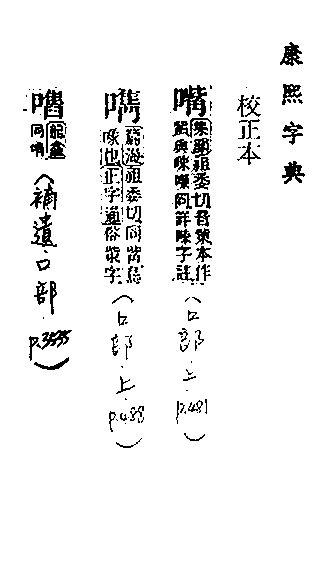 康熙字典
校正本
嘴 集韻祖委切音觜本作
觜與咮噣同詳咮字註
(口部.上.p.481)
噿 篇海祖委切同觜鳥
喙也正字通俗觜字
(口部.上.p.488)
龍龕
同嘴
(補遺.口部.p.3535)